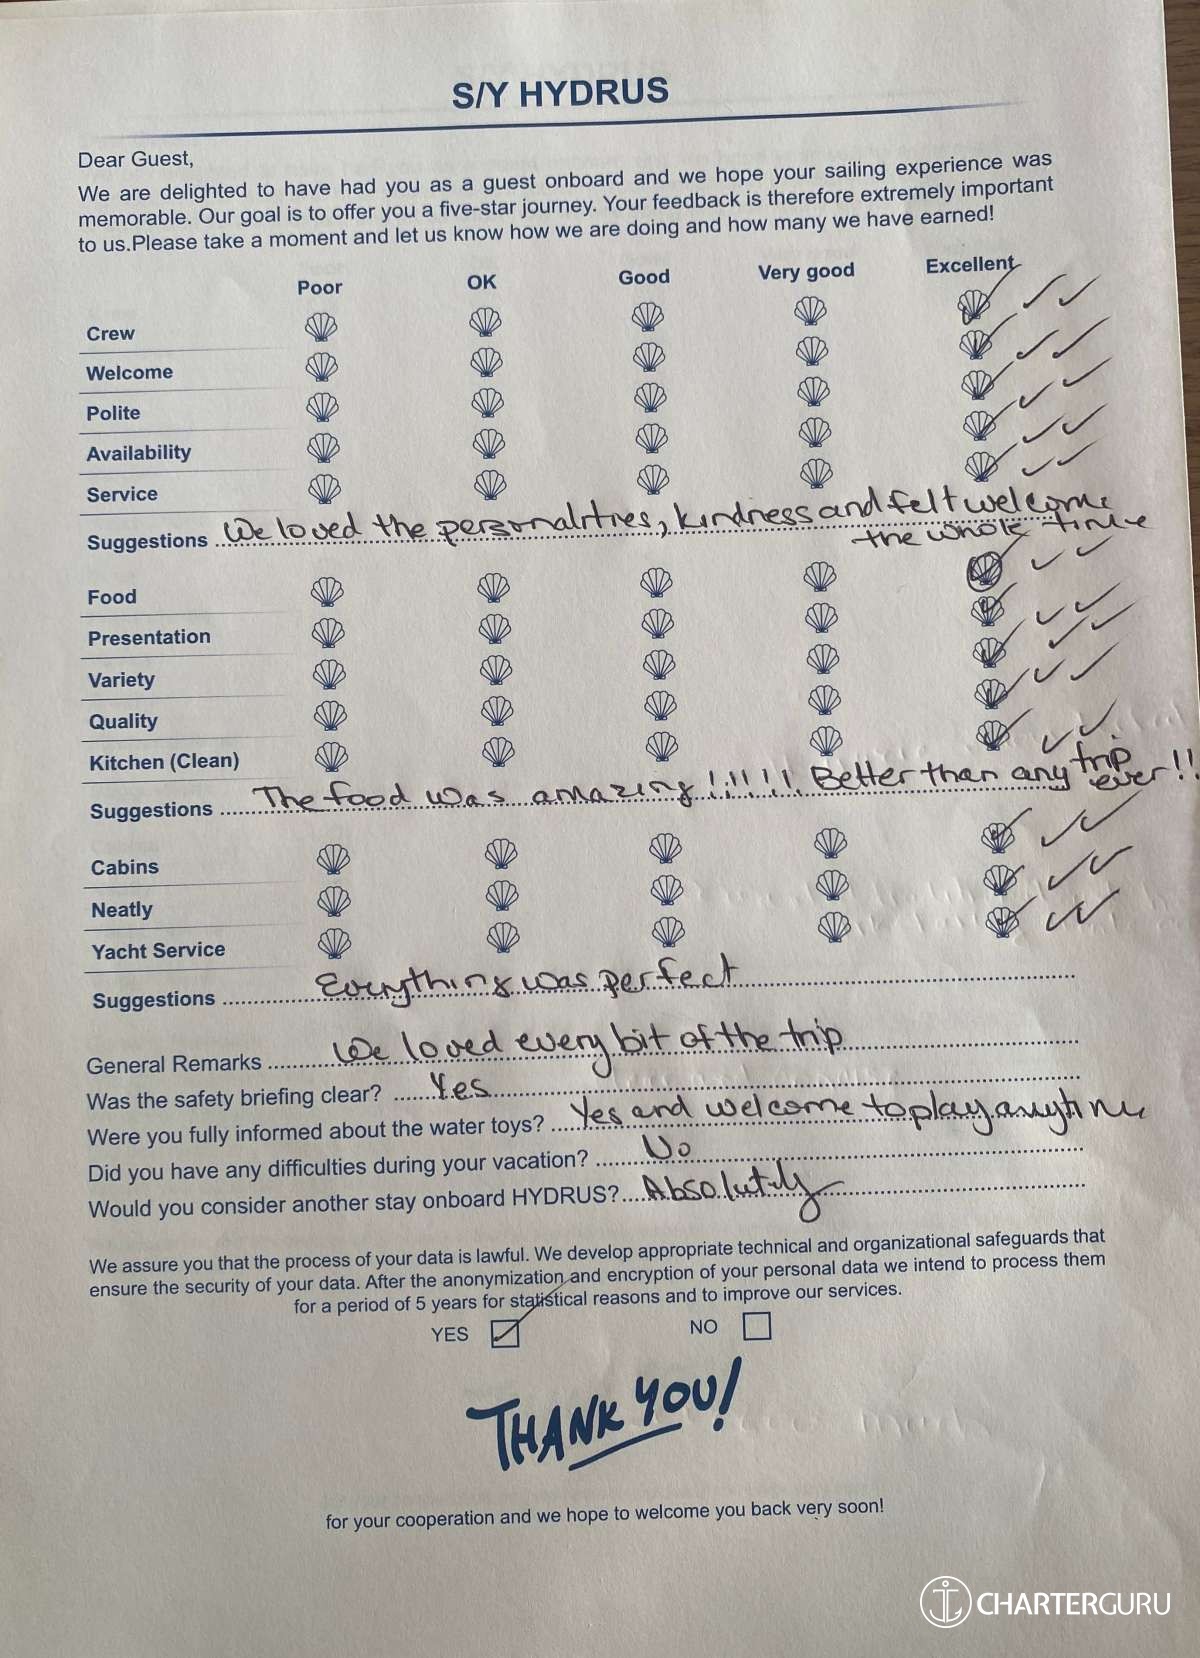 S/Y HYDRUS
Dear Guest,
We are delighted to have had you as a guest onboard and we hope your sailing experience was
memorable. Our goal is to offer you a five-star journey. Your feedback is therefore extremely important
to us.Please take a moment and let us know how we are doing and how many we have earned!
Poor OK Good Very good Excellent
Crew
Welcome
Polite
Availability
Service
Suggestions We loved the personalities, kindness and felt welcome
the whole time
Food
Presentation
Variety
Quality
Kitchen (Clean)
Suggestions The food was amazing!!!!!! Better than any trip
ever!!
Cabins
Neatly
Yacht Service
Suggestions Everything was perfect
General Remarks We loved every bit of the trip
Was the safety briefing clear? Yes
Were you fully informed about the water toys? Yes and welcome to play anytime
Did you have any difficulties during your vacation? No
Would you consider another stay onboard HYDRUS? Absolutely
We assure you that the process of your data is lawful. We develop appropriate technical and organizational safeguards that
ensure the security of your data. After the anonymization and encryption of your personal data we intend to process them
for a period of 5 years for statistical reasons and to improve our services.
YES NO
THANK YOU!
for your cooperation and we hope to welcome you back very soon!
CHARTERGURU